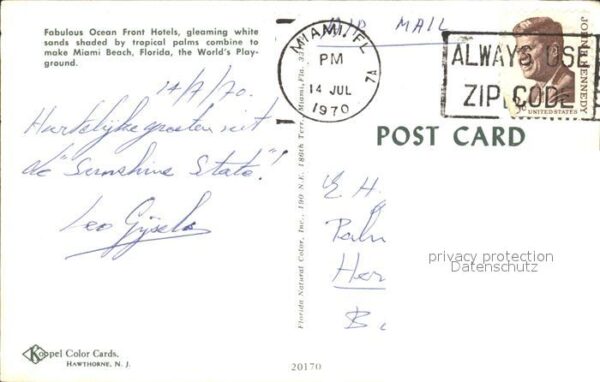 Fabulous Ocean Front Hotels, gleaming white
sands shaded by tropical palms combine to
make Miami Beach, Florida, the World's Play-
ground.
14/7/70.
Hartelijke groeten uit
de "Sunshine State"!
Leo
Koppel Color Cards.
HAWTHORNE, N. J.
Florida Natural Color, Inc., 190 N.E. 186th Terr., Miami, Fla. 33
20170
AIR MAIL
MIAMI, FL
PM
14 JUL
1970
7A
ALWAYS USE
ZIP CODE
JOHN F. KENNEDY
UNITED STATES
POST CARD
E H
Palm
Her
B
privacy protection
Datenschutz